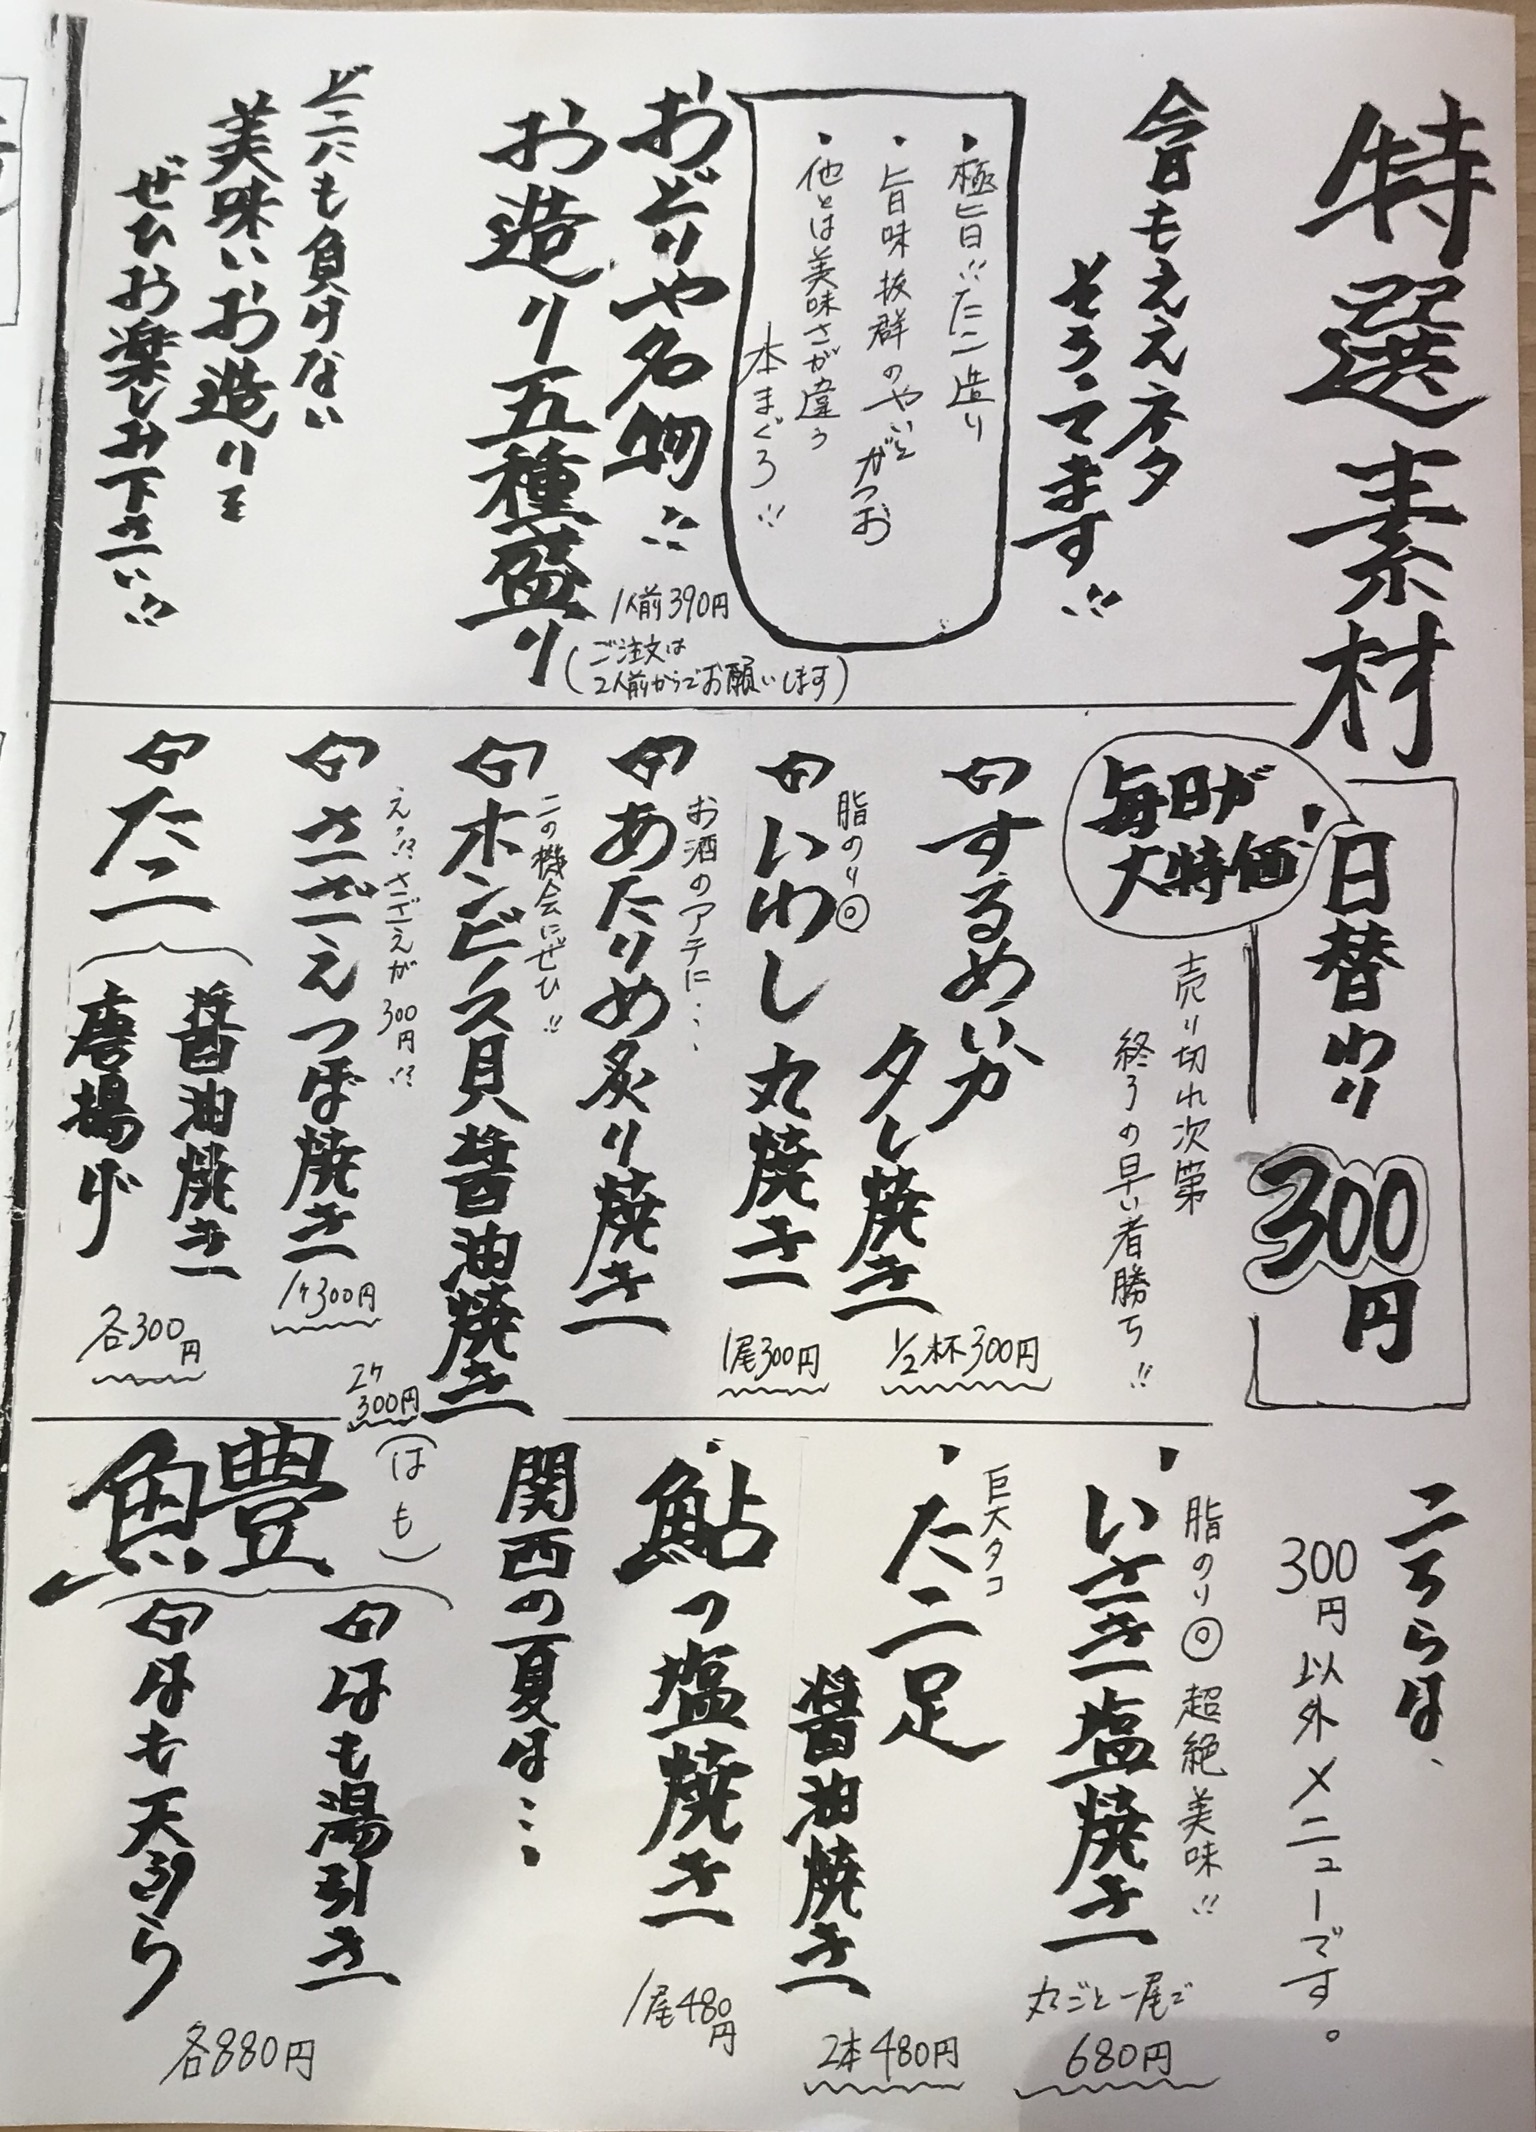 特選素材
今日もええネタ
そろってます!!
・極旨!!たこ造り
・旨味抜群のやいと
がつお
・他とは美味さが違う
本まぐろ!!
おどりや名物!!
お造り五種盛り
1人前390円
(ご注文は
2人前からでお願いします)
どこにも負けない
美味いお造りを
ぜひお楽しみ下さい!!
日替わり
300円
毎日が
大特価!
売り切れ次第
終了の早い者勝ち!!
するめいか
タレ焼き
1/2杯300円
脂のり◎
いわし丸焼き
1尾300円
お酒のアテに...
あたりめ炙り焼き
この機会にぜひ!!
ホンビノス貝醤油焼き
2ヶ
300円
えっ!?さざえが300円!?
さざえつぼ焼き
1ヶ300円
たこ
醤油焼き
唐揚げ
各300円
こちらは、
300円以外メニューです。
脂のり◎超絶美味!!
・いさき塩焼き
丸ごと一尾で
680円
巨大タコ
・たこ足
醤油焼き
2本480円
・鮎の塩焼き
1尾480円
関西の夏は...
(はも)
鱧
はも湯引き
はも天ぷら
各880円